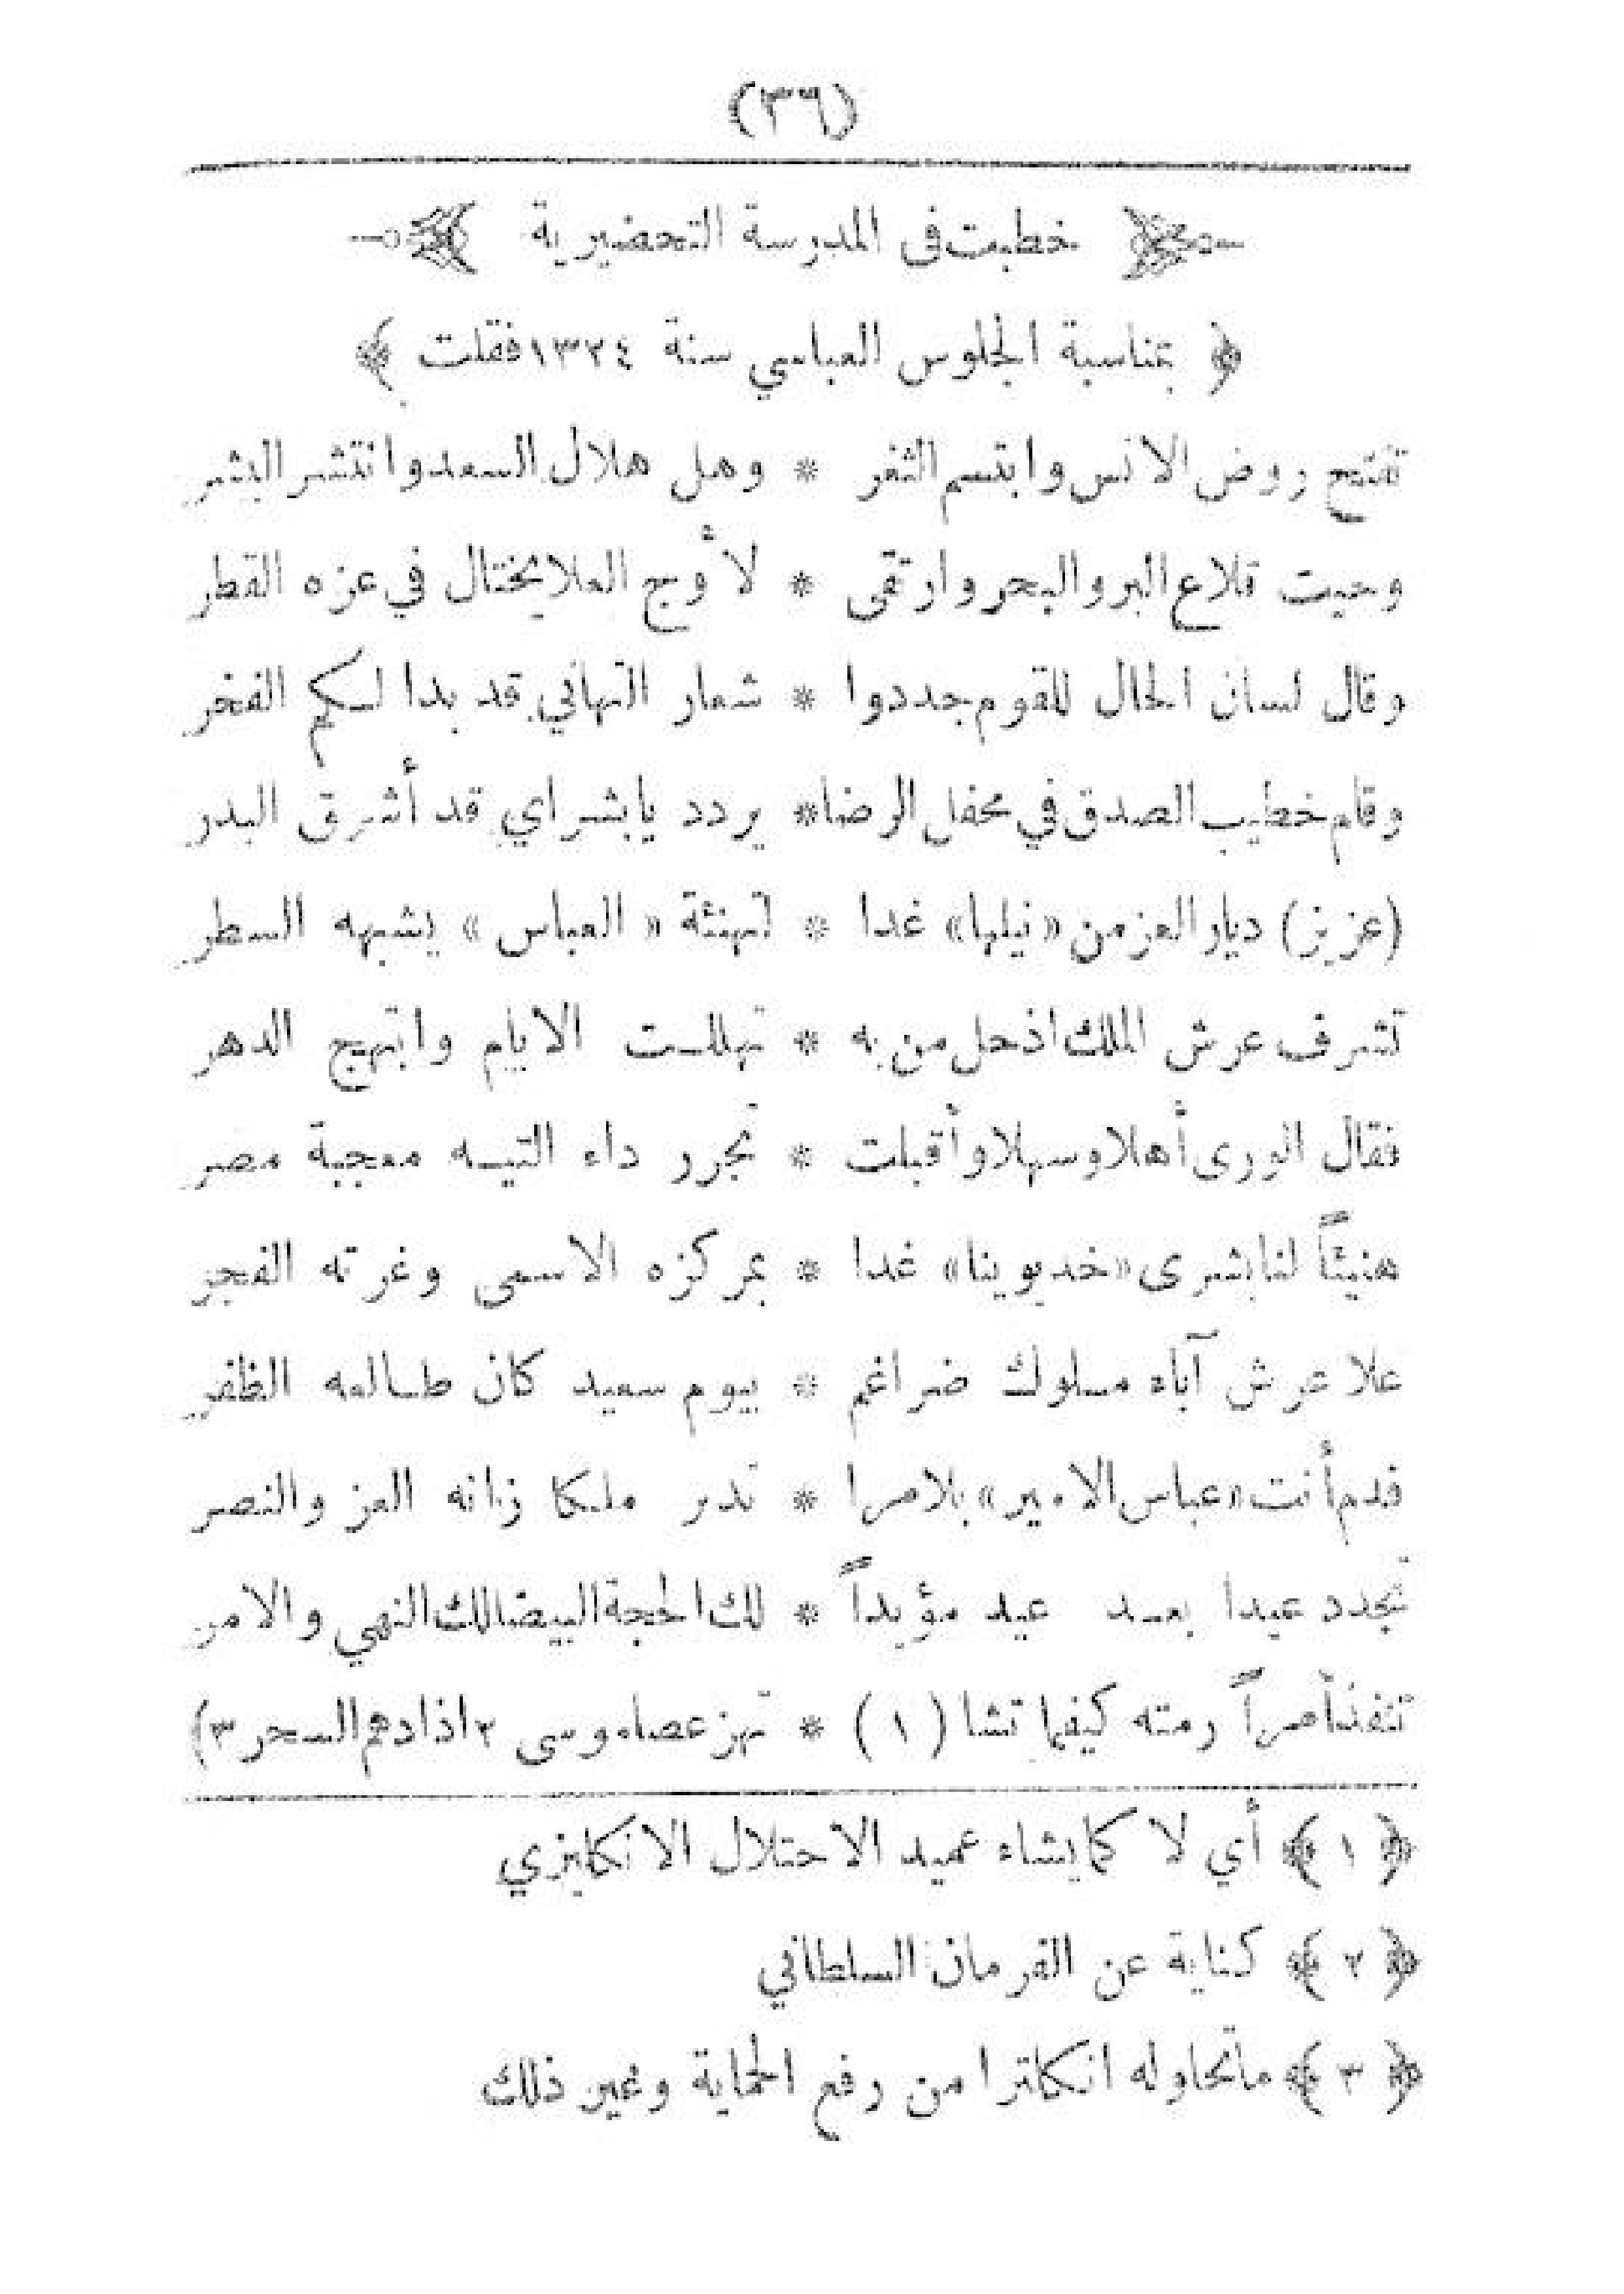 (٣٦)
خطبت في المدرسة التحضيرية
﴿ بمناسبة الجلوس العباسي سنة ١٣٢٤ فقلت ﴾
تفتح روض الانس وابتسم الثغر * وهل هلال السعد وانتشر البشر
وحيت قلاع البر والبحر وارتقى * لأوج العلا يختال في عزه القطر
وقال لسان الحال للقوم جددوا * شعار التهاني قد بدا لكم الفخر
وقام خطيب الصدق في محفل الرضا * يردد يابشراي قد أشرق البدر
(عزيز) ديار العز من «نيلها» غدا * لتهنئة «العباس» يشبهه السطر
تشرف عرش الملك اذ حل من به * تهللت الايام وابتهج الدهر
فقال الورى أهلا وسهلا وأقبلت * تجرر داء التيه معجبة مصر
هنيئاً لنا بشرى «خديوينا» غدا * بمركزه الاسمى وغرته الفجر
علا عرش آباء ملوك ضراغم * بيوم سعيد كان طالعه الظفر
فدم أنت «عباس الامير» بلا مرا * تدر ملكا زانه العز والنصر
تجدد عيدا بعد عيد مؤيداً * لك الحجة البيضا لك النهي والامر
تنفذ أمراً رمته كيفما تشا (١) * تهز عصا موسى ٢ اذا دهم السحر ٣)
﴿ ١ ﴾ أي لا كما يشاء عميد الاحتلال الانكليزي
﴿ ٢ ﴾ كناية عن الفرمان السلطاني
﴿ ٣ ﴾ ماتحاوله انكلترا من رفع الحماية وغير ذلك